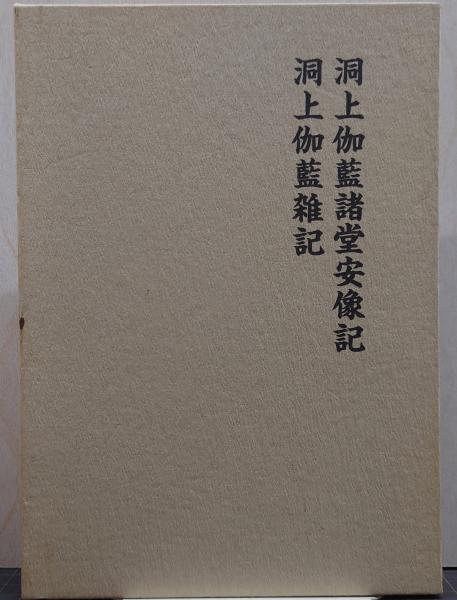 洞上伽藍諸堂安像記
洞上伽藍雑記